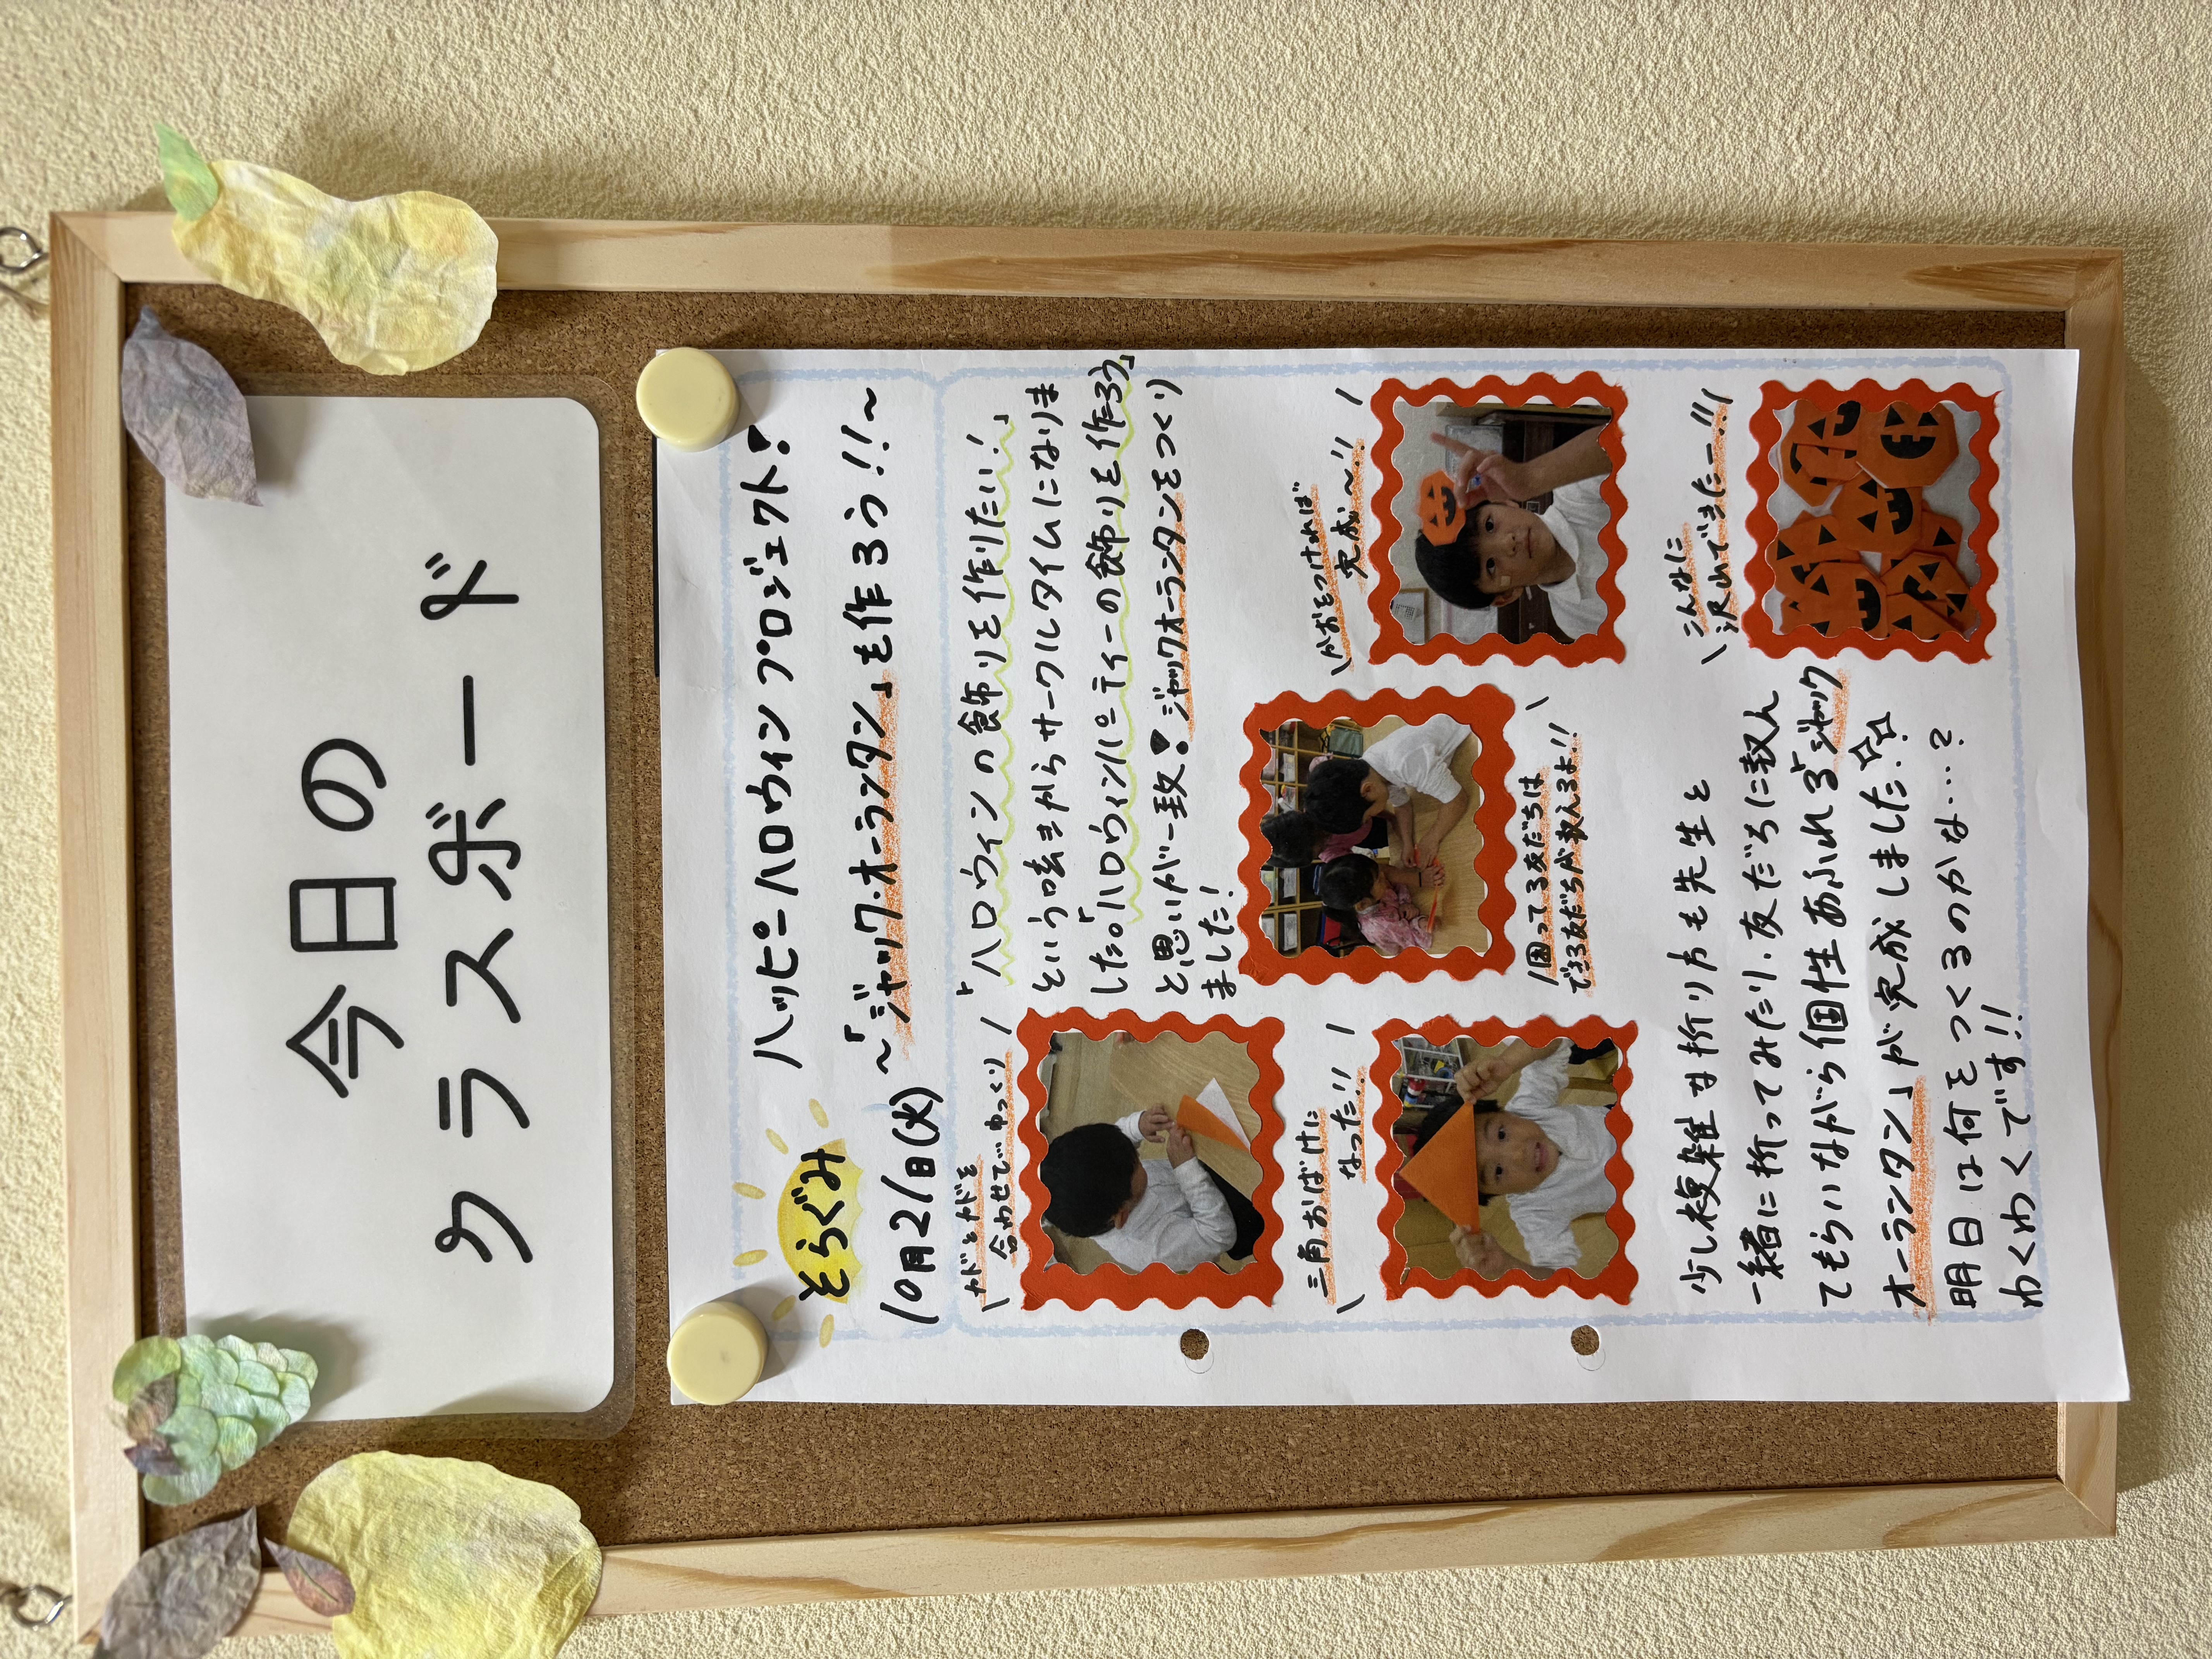 今日の
クラスボード
そらぐみ
ハッピーハロウィンプロジェクト!
10月21日(火)
～「ジャック・オーランタン」を作ろう!!～
カドとカドを
合わせてゆっくり
「ハロウィンの飾りを作りたい!」
という呟きからサークルタイムになりま
した。「ハロウィンパーティーの飾りを作ろう」
と思いが一致!ジャックオーランタンをつくり
ました!
三角おばけに
なった!!
困ってる友だちは
できる友だちが教えるよ!!
かおをつければ
完成～!!
こんなに
沢山できたー!!
少し複雑な折り方も先生と
一緒に折ってみたり、友だちに教え
てもらいながら個性あふれる「ジャック
オーランタン」が完成しました!☆☆
明日は何をつくるのかな…?
わくわくです!!